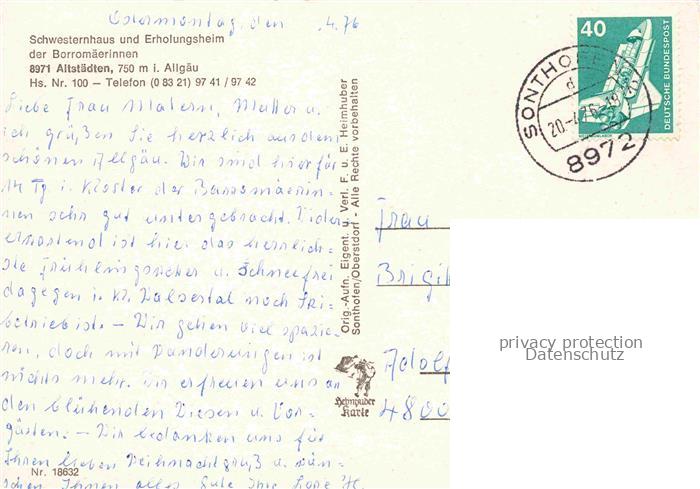 Ostermontag, den .4.76
Schwesternhaus und Erholungsheim
der Borromäerinnen
8971 Altstädten, 750 m i. Allgäu
Hs. Nr. 100 – Telefon (0 83 21) 97 41 / 97 42
Liebe Frau Matern, Mutter u.
ich grüßen Sie herzlich aus dem
schönen Allgäu. Wir sind hier für
14 Tg i. Kloster der Borromäerin-
nen sehr gut untergebracht.
ist hier das herrlich-
ste Frühlingswetter u. Schneefrei
dagegen i. Kl. Walsertal noch Ski-
betrieb ist. – Wir gehen viel spazie-
ren, doch mit Wanderungen ist
nichts mehr. Wir erfreuen uns an
den blühenden Wiesen u. Vor-
gärten. – Wir bedanken uns für
Ihren lieben Weihnachtgruß u. wün-
schen Ihnen alles Gute Ihre
Nr. 18632
Orig.-Aufn. Eigent. u. Verl. F. u. E. Heimhuber
Sonthofen/Oberstdorf - Alle Rechte vorbehalten
Heimhuber
Karte
40
DEUTSCHE BUNDESPOST
SONTHOFEN
d
20.-4.76
8972
Frau
Brigit
Adolf
4800
privacy protection
Datenschutz